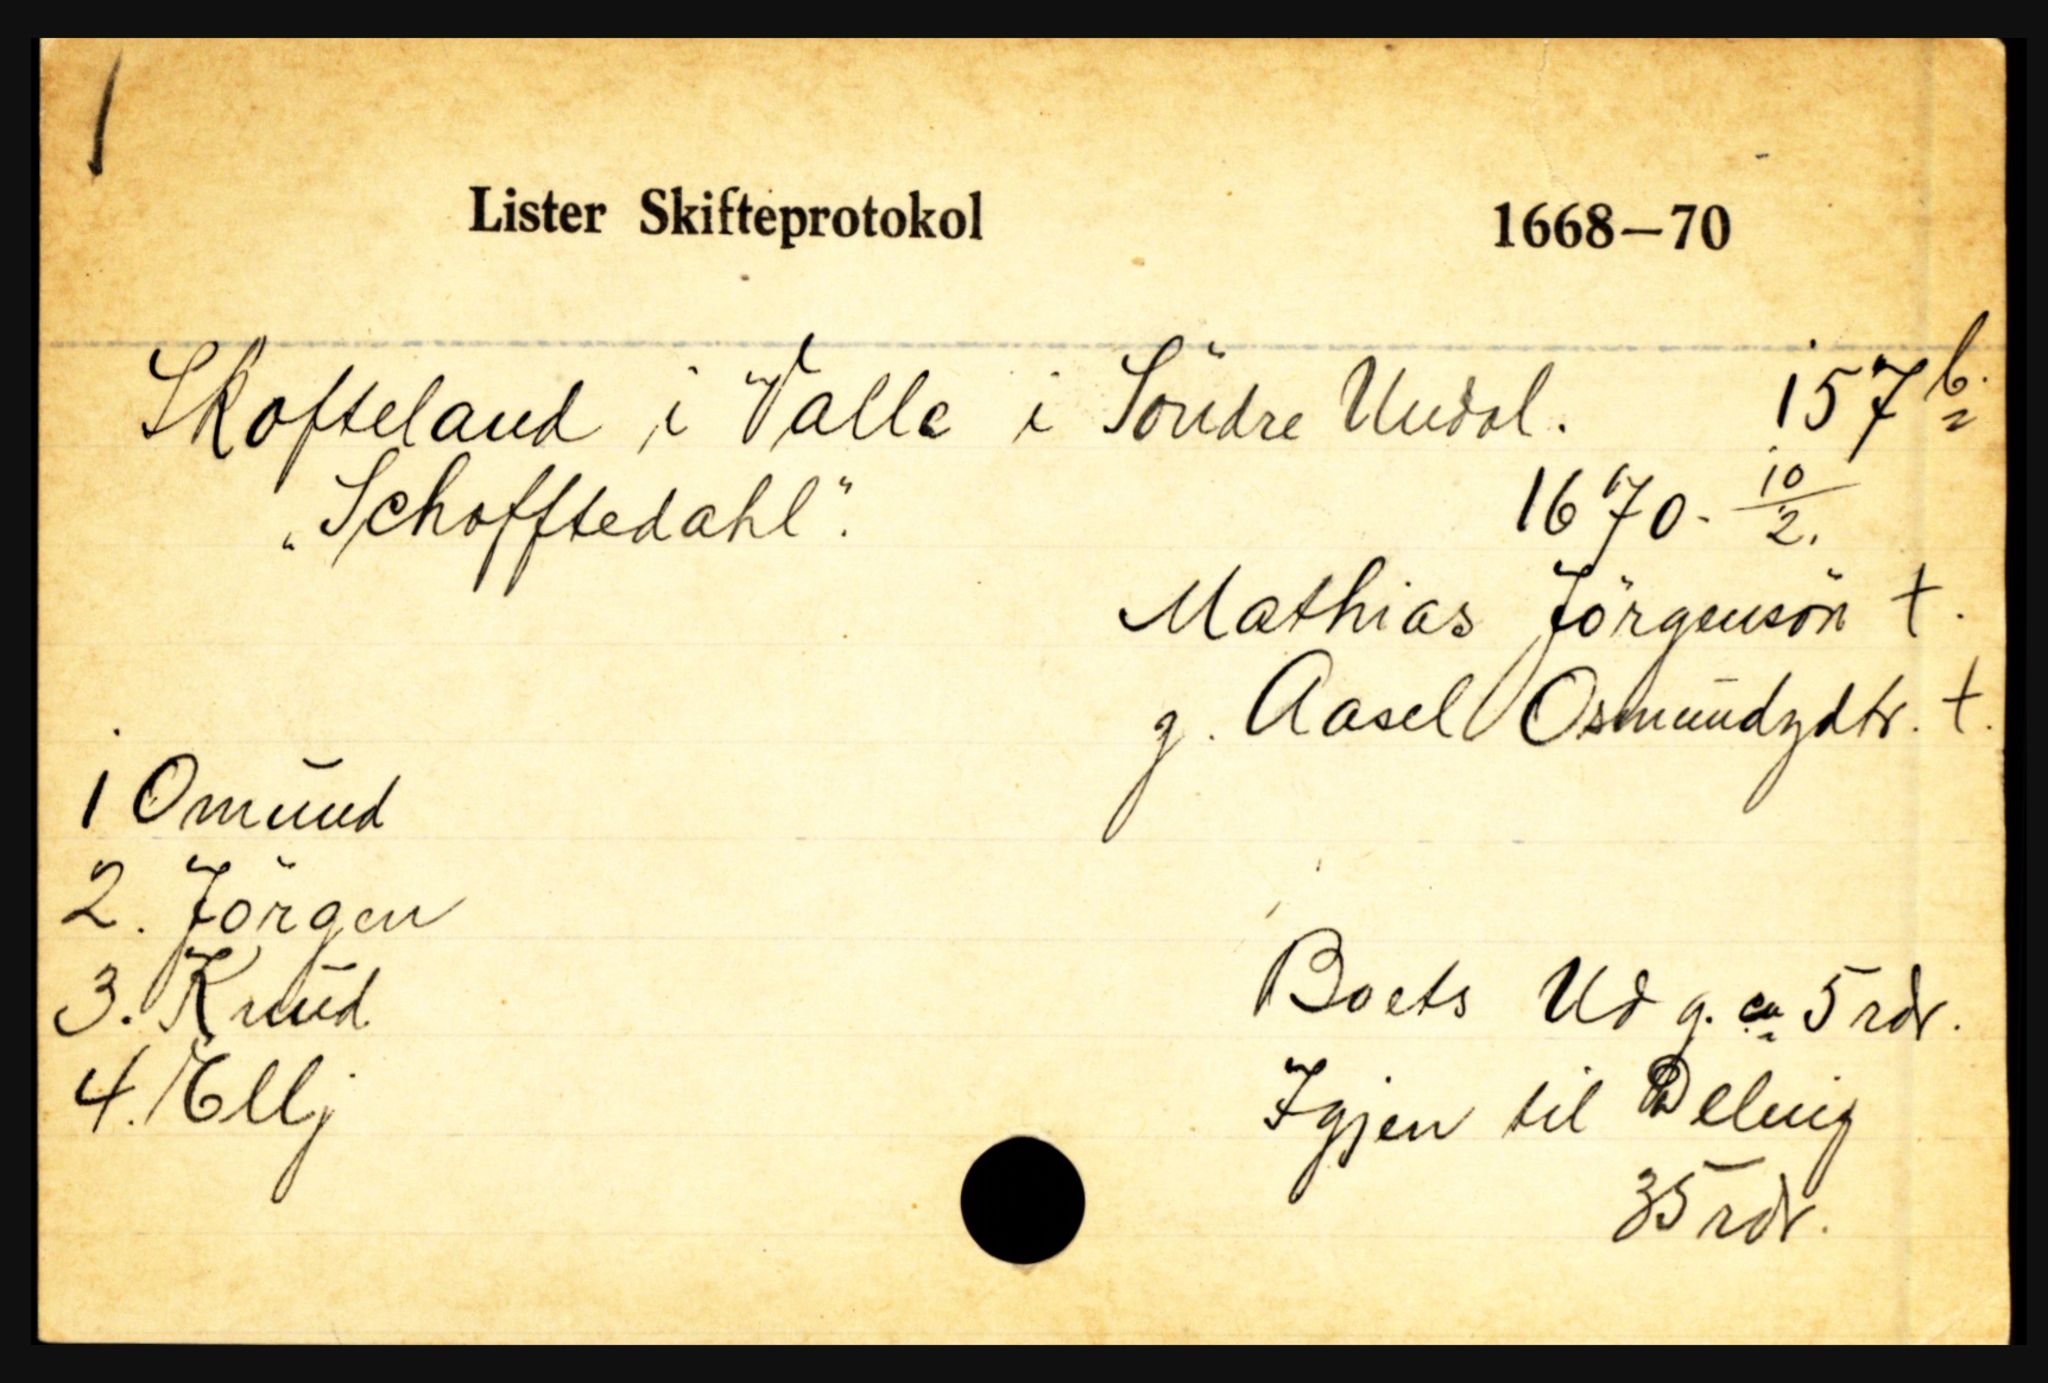 Lister Skifteprotokol 1668—70
Skofteland i Valle i Söndre Undal. 157 b.
„Schofftedahl". 1670. 10/2.
Mathias Jörgensön †.
g. Aasel Osmundzdtr. †.
1 Omund
2. Jörgen
3. Knud
4. Ellj
Boets Ud g. ca 5 rdr.
Igjen til Deling
35 rdr.